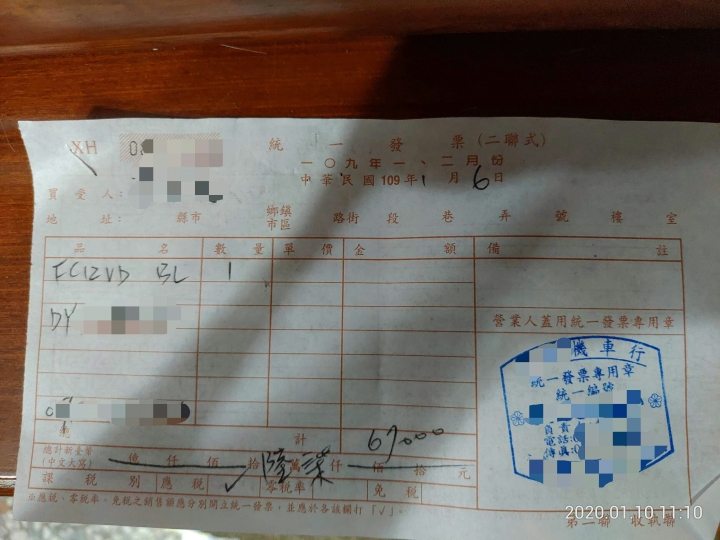 XH 統一發票(二聯式)
一〇九年一、二月份
中華民國109年1月6日
買受人:
地址: 縣市 鄉鎮市區 路街 段 巷 弄 號 樓 室
品名 數量 單價 金額 備註
EC12VD BL 1
DY
營業人蓋用統一發票專用章
機車行
統一發票專用章
統一編號
負責
電話:
傳真:
總計 67000
總計新臺幣(中文大寫) 億 仟 佰 拾 陸萬 柒仟 佰 拾 元
課稅別 應稅 ✓ 零稅率 免稅
※應稅、零稅率、免稅之銷售額應分別開立統一發票,並應於各該欄打「✓」。
第二聯 收執聯
2020.01.10 11:10